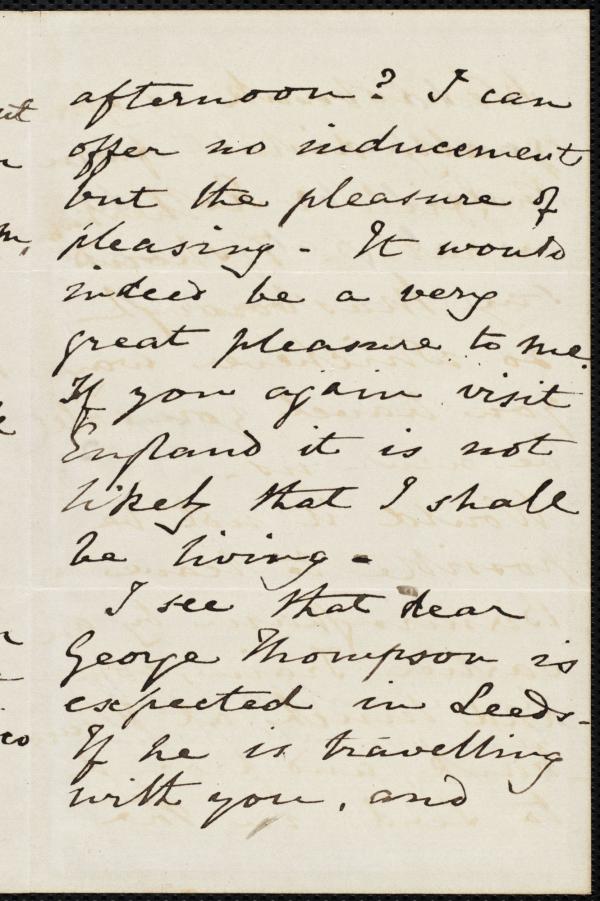 afternoon? I can
offer no inducement
but the pleasure of
pleasing - It would
indeed be a very
great pleasure to me.
If you again visit
England it is not
likely that I shall
be living -
I see that dear
George Thompson is
expected in Leeds -
If he is travelling
with you, and